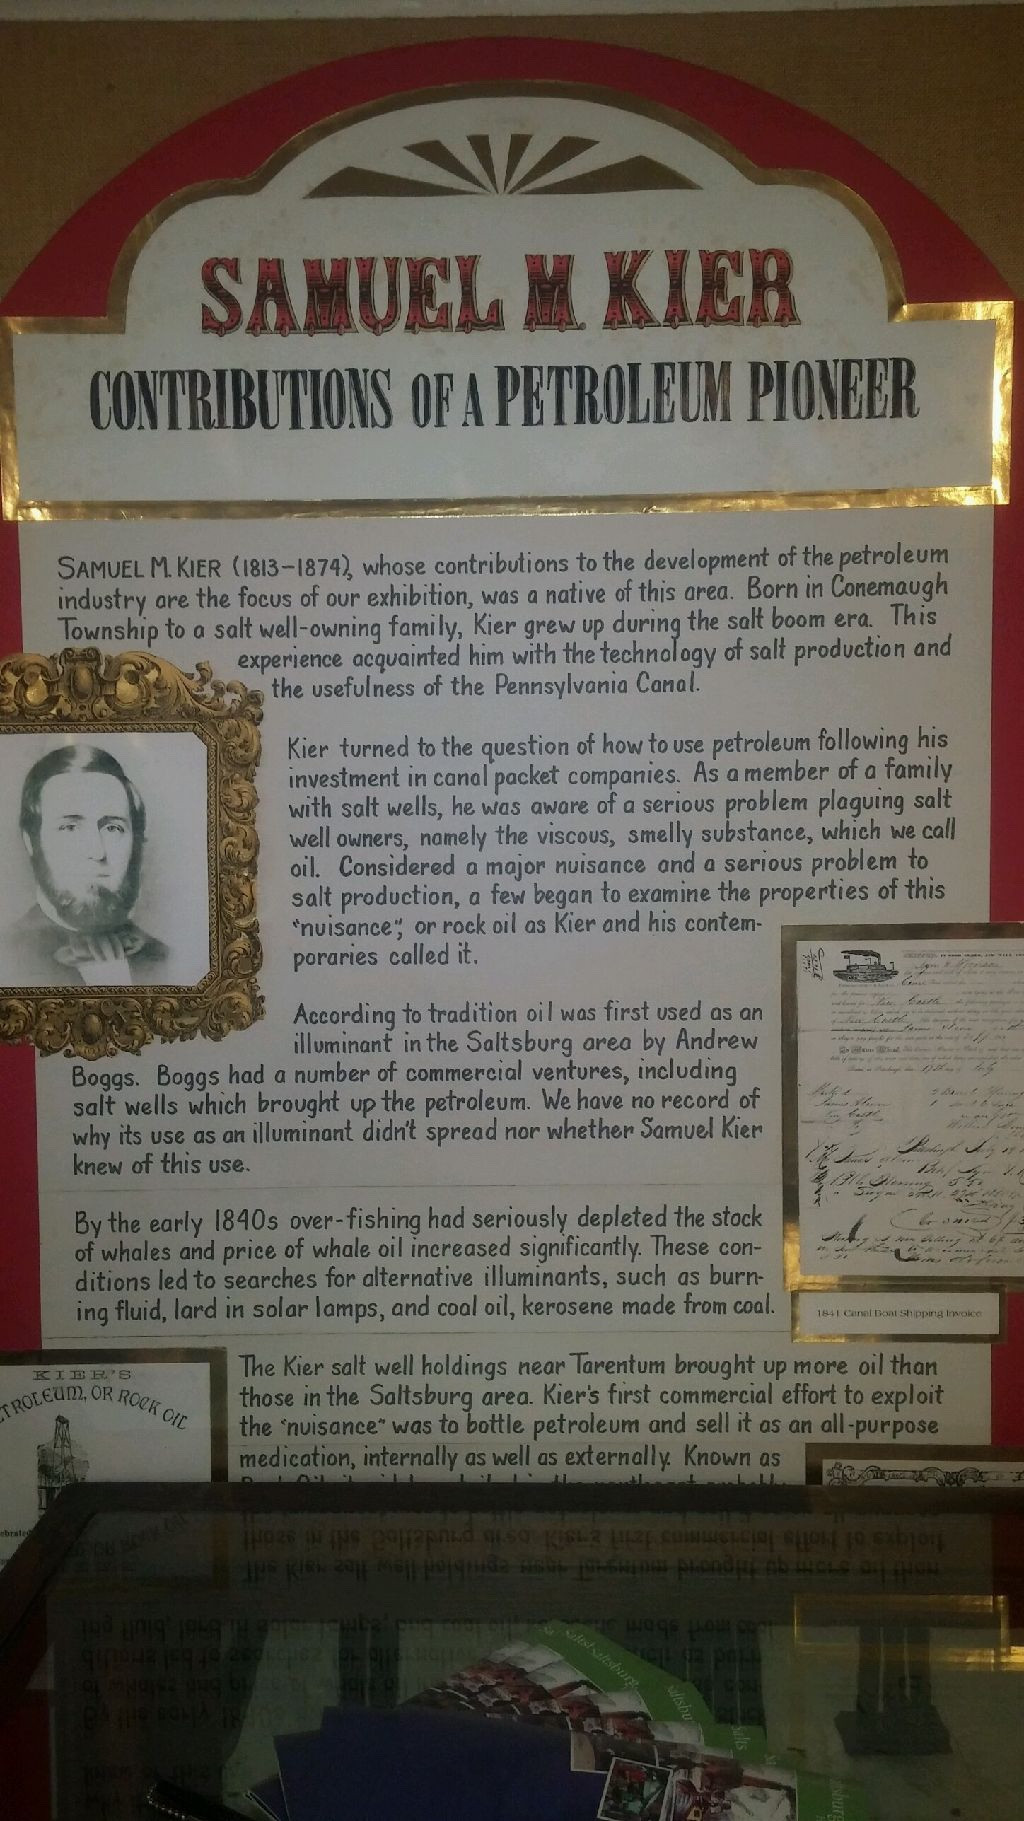 SAMUEL M. KIER
CONTRIBUTIONS OF A PETROLEUM PIONEER
SAMUEL M. KIER (1813–1874), whose contributions to the development of the petroleum
industry are the focus of our exhibition, was a native of this area. Born in Conemaugh
Township to a salt well-owning family, Kier grew up during the salt boom era. This
experience acquainted him with the technology of salt production and
the usefulness of the Pennsylvania Canal.
Kier turned to the question of how to use petroleum following his
investment in canal packet companies. As a member of a family
with salt wells, he was aware of a serious problem plaguing salt
well owners, namely the viscous, smelly substance, which we call
oil. Considered a major nuisance and a serious problem to
salt production, a few began to examine the properties of this
"nuisance", or rock oil as Kier and his contem-
poraries called it.
According to tradition oil was first used as an
illuminant in the Saltsburg area by Andrew
Boggs. Boggs had a number of commercial ventures, including
salt wells which brought up the petroleum. We have no record of
why its use as an illuminant didn't spread nor whether Samuel Kier
knew of this use.
By the early 1840s over-fishing had seriously depleted the stock
of whales and price of whale oil increased significantly. These con-
ditions led to searches for alternative illuminants, such as burn-
ing fluid, lard in solar lamps, and coal oil, kerosene made from coal.
1841 Canal Boat Shipping Invoice
The Kier salt well holdings near Tarentum brought up more oil than
those in the Saltsburg area. Kier's first commercial effort to exploit
the "nuisance" was to bottle petroleum and sell it as an all-purpose
medication, internally as well as externally. Known as
KIER'S
TROLEUM, OR ROCK OIL
Saltsburg